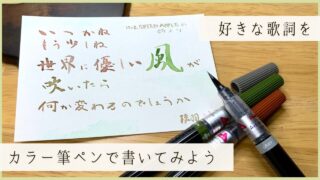 好きな歌詞を
いつかね
もう少しね
世界に優しい風が
吹いたら
何か変わるのでしょうか
カラー筆ペンで書いてみよう